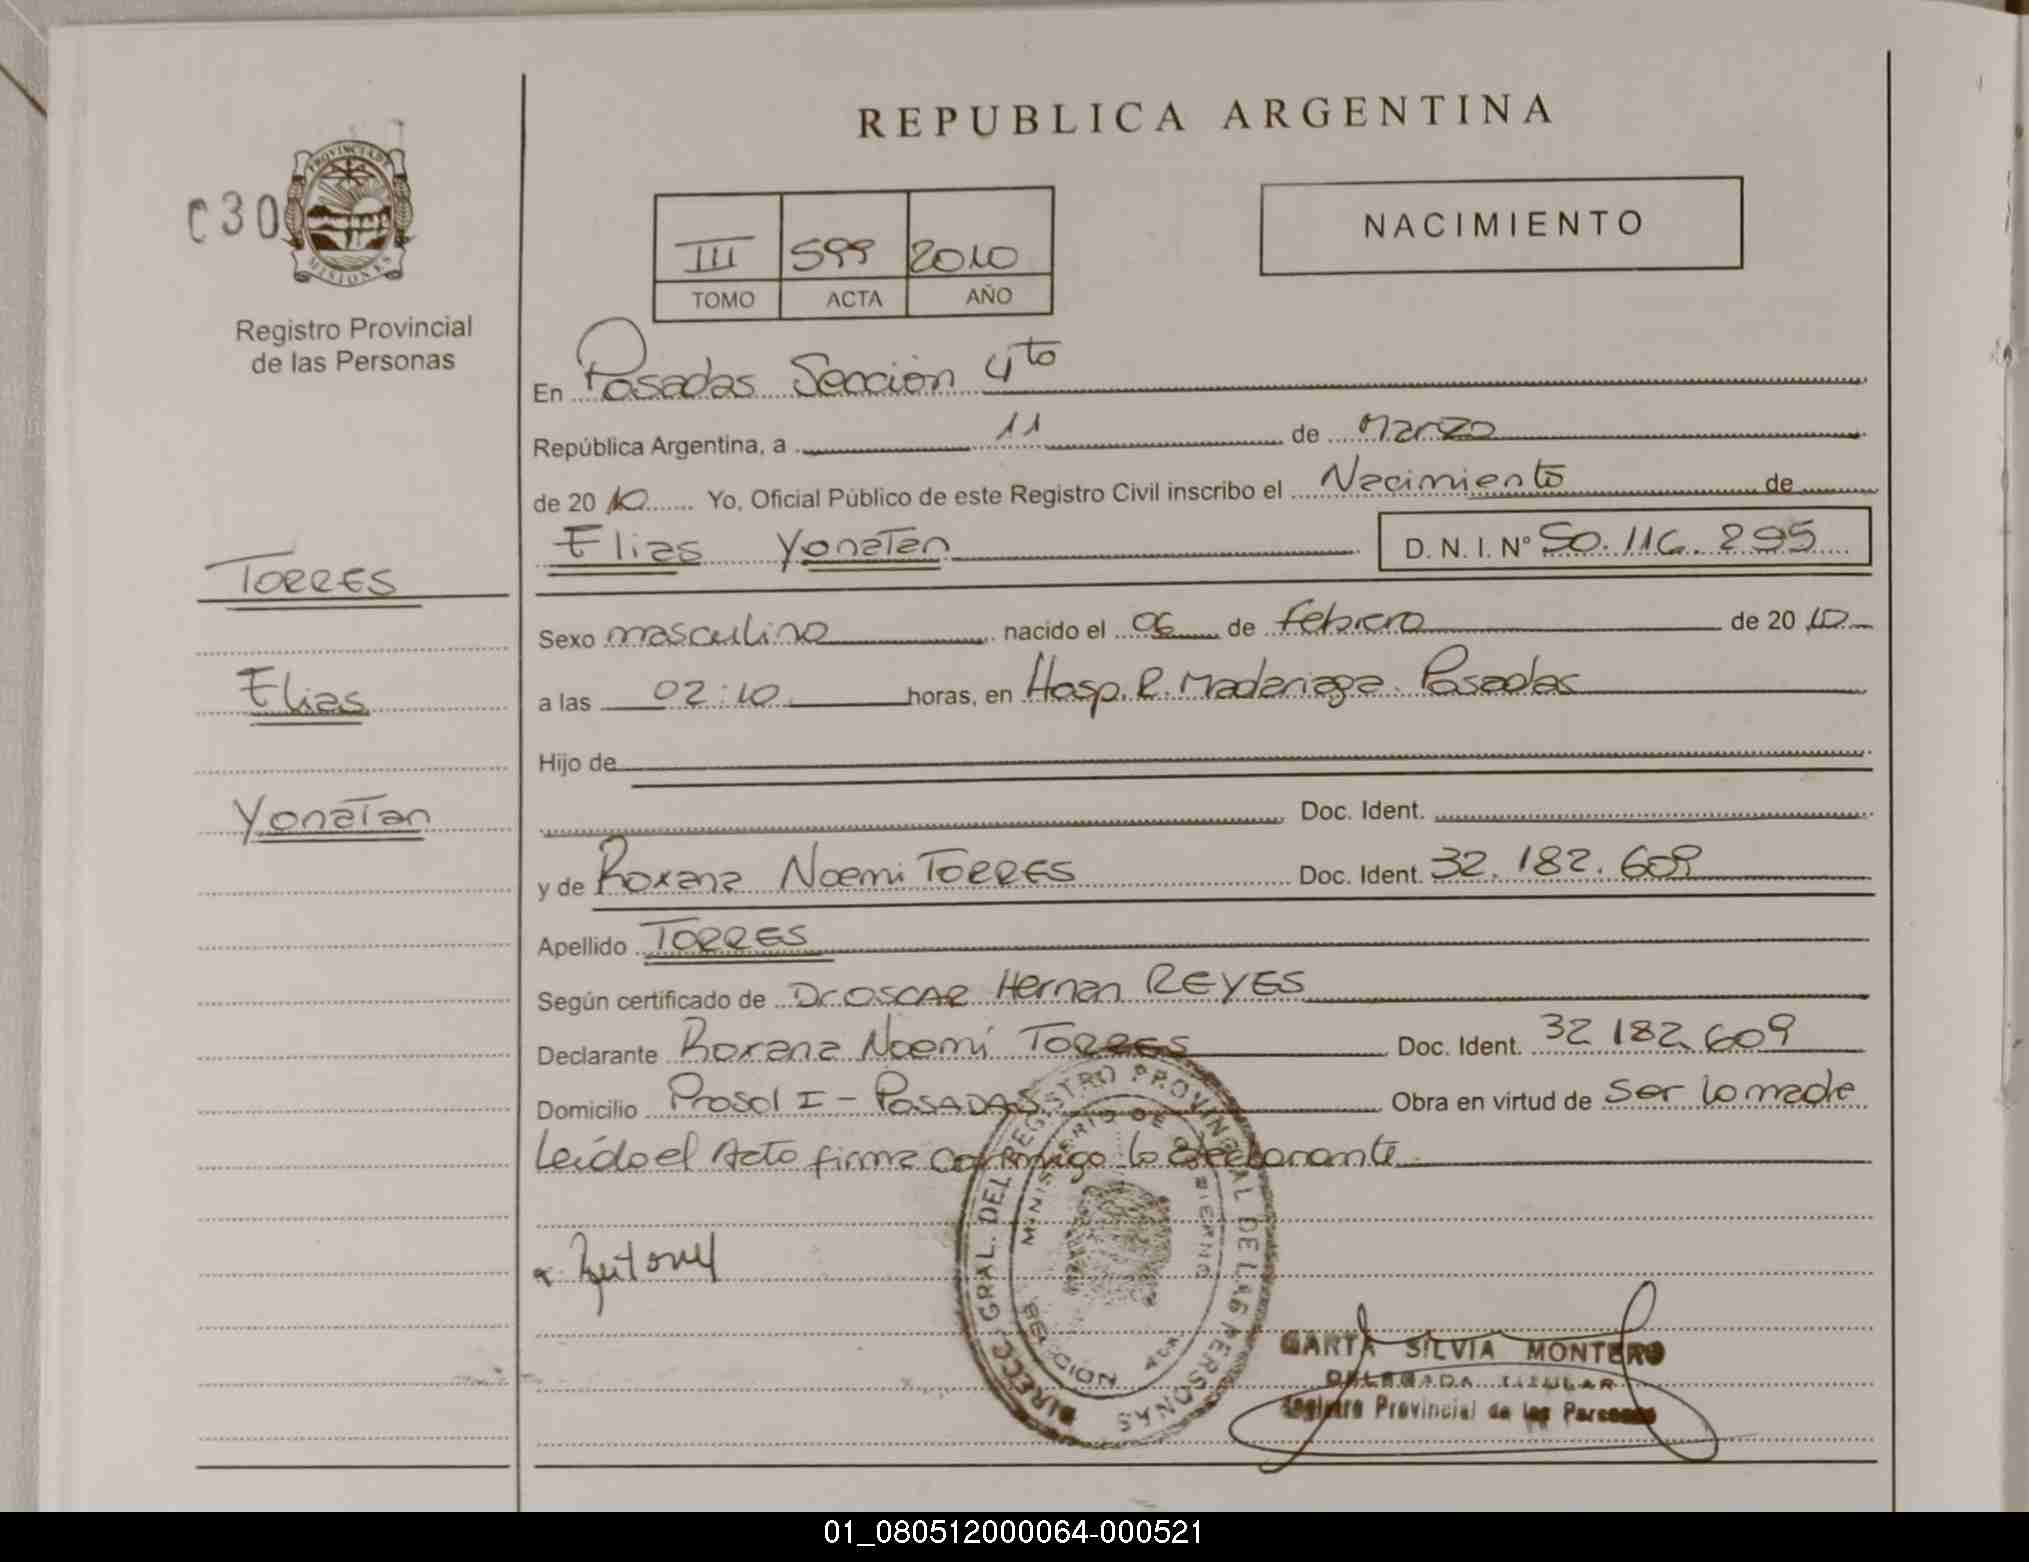 REPUBLICA ARGENTINA
C30
PROVINCIA DE MISIONES
Registro Provincial
de las Personas
III 599 2010
TOMO ACTA AÑO
NACIMIENTO
En Posadas Seccion 4to
República Argentina, a 11 de Marzo
de 2010 Yo, Oficial Público de este Registro Civil inscribo el Nacimiento de
Elias Yonatan D. N. I. N° 50.116.295
TORRES
Elias
Yonatan
Sexo masculino nacido el 06 de Febrero de 2010
a las 02:10 horas, en Hosp. R. Madariaga. Posadas
Hijo de
Doc. Ident.
y de Roxana Noemi TORRES Doc. Ident. 32.182.609
Apellido TORRES
Según certificado de Dr OSCAR Hernan REYES
Declarante Roxana Noemi TORRES Doc. Ident. 32 182 609
Domicilio Prosol I - POSADAS Obra en virtud de ser la madre
Leido el Acto firma conmigo la declarante
DIRECC. GRAL. DEL REGISTRO PROVINCIAL DE LAS PERSONAS
MINISTERIO DE GOBIERNO
MARTA SILVIA MONTERO
DELEGADA TITULAR
Registro Provincial de las Personas
01_080512000064-000521